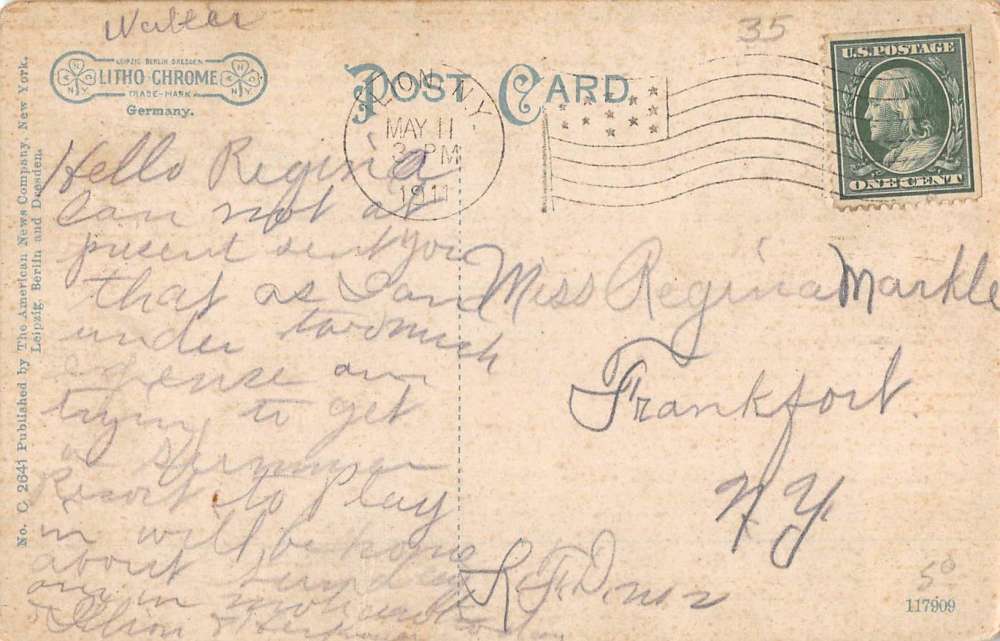 Walter
35
LEIPZIG BERLIN DRESDEN
LITHO-CHROME
TRADE-MARK
Germany.
POST CARD
ILION, N.Y.
MAY 11
3 PM
1911
U.S. POSTAGE
ONE CENT
No. C. 2641 Published by The American News Company, New York.
Leipzig, Berlin and Dresden.
Hello Regina
Can not at
present sent you
that as I am
under too much
expense am
trying to get
a Summer
Resort to Play
in will be home
about Sunday
am in
Ilion
Miss Regina Markle
Frankfort.
N.Y.
R.F.D. no 2
50
117909